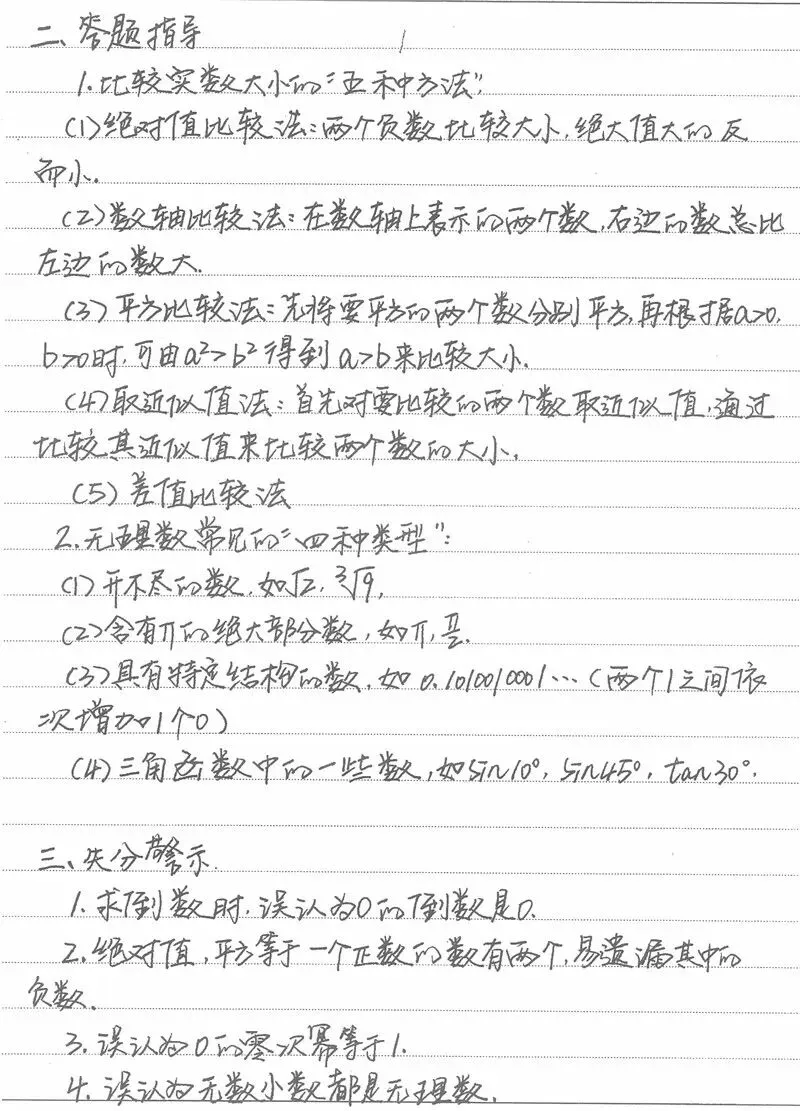 二、答题指导
1.比较实数大小的“五种方法”:
(1)绝对值比较法:两个负数比较大小,绝大值大的反
而小.
(2)数轴比较法:在数轴上表示的两个数,右边的数总比
左边的数大.
(3)平方比较法:先将要平方的两个数分别平方,再根据a>0,
b>0时,可由a²>b²得到a>b来比较大小.
(4)取近似值法:首先对要比较的两个数取近似值,通过
比较其近似值来比较两个数的大小.
(5)差值比较法
2.无理数常见的“四种类型”:
(1)开不尽的数,如√2,³√9,
(2)含有π的绝大部分数,如π,π/2.
(3)具有特定结构的数,如0.1010010001…(两个1之间依
次增加1个0)
(4)三角函数中的一些数,如sin10°,sin45°,tan30°.
三、失分警示.
1.求倒数时,误认为0的倒数是0.
2.绝对值,平方等于一个正数的数有两个,易遗漏其中的
负数.
3.误认为0的零次幂等于1.
4.误认为无数小数都是无理数.